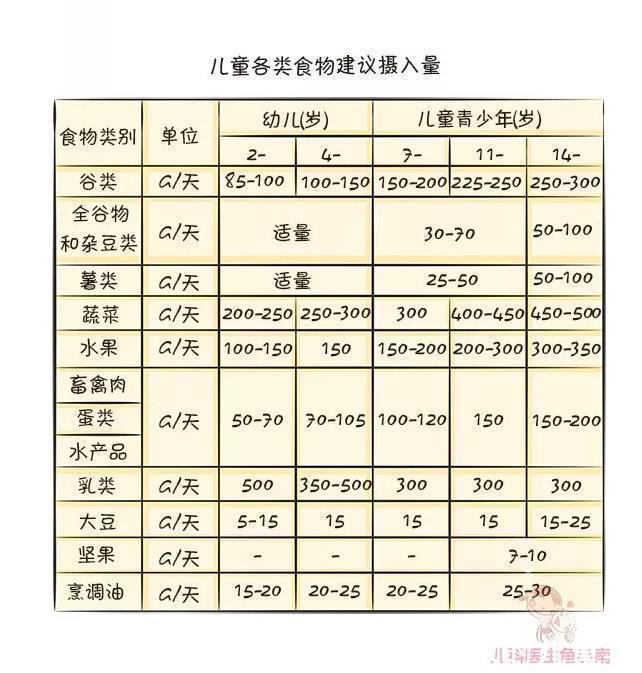 儿童各类食物建议摄入量
食物类别 单位 幼儿(岁) 儿童青少年(岁)
2- 4- 7- 11- 14-
谷类 G/天 85-100 100-150 150-200 225-250 250-300
全谷物
和杂豆类 G/天 适量 30-70 50-100
薯类 G/天 适量 25-50 50-100
蔬菜 G/天 200-250 250-300 300 400-450 450-500
水果 G/天 100-150 150 150-200 200-300 300-350
畜禽肉
蛋类 G/天 50-70 70-105 100-120 150 150-200
水产品
乳类 G/天 500 350-500 300 300 300
大豆 G/天 5-15 15 15 15 15-25
坚果 G/天 - - - 7-10
烹调油 G/天 15-20 20-25 20-25 25-30
儿科医生鱼小南